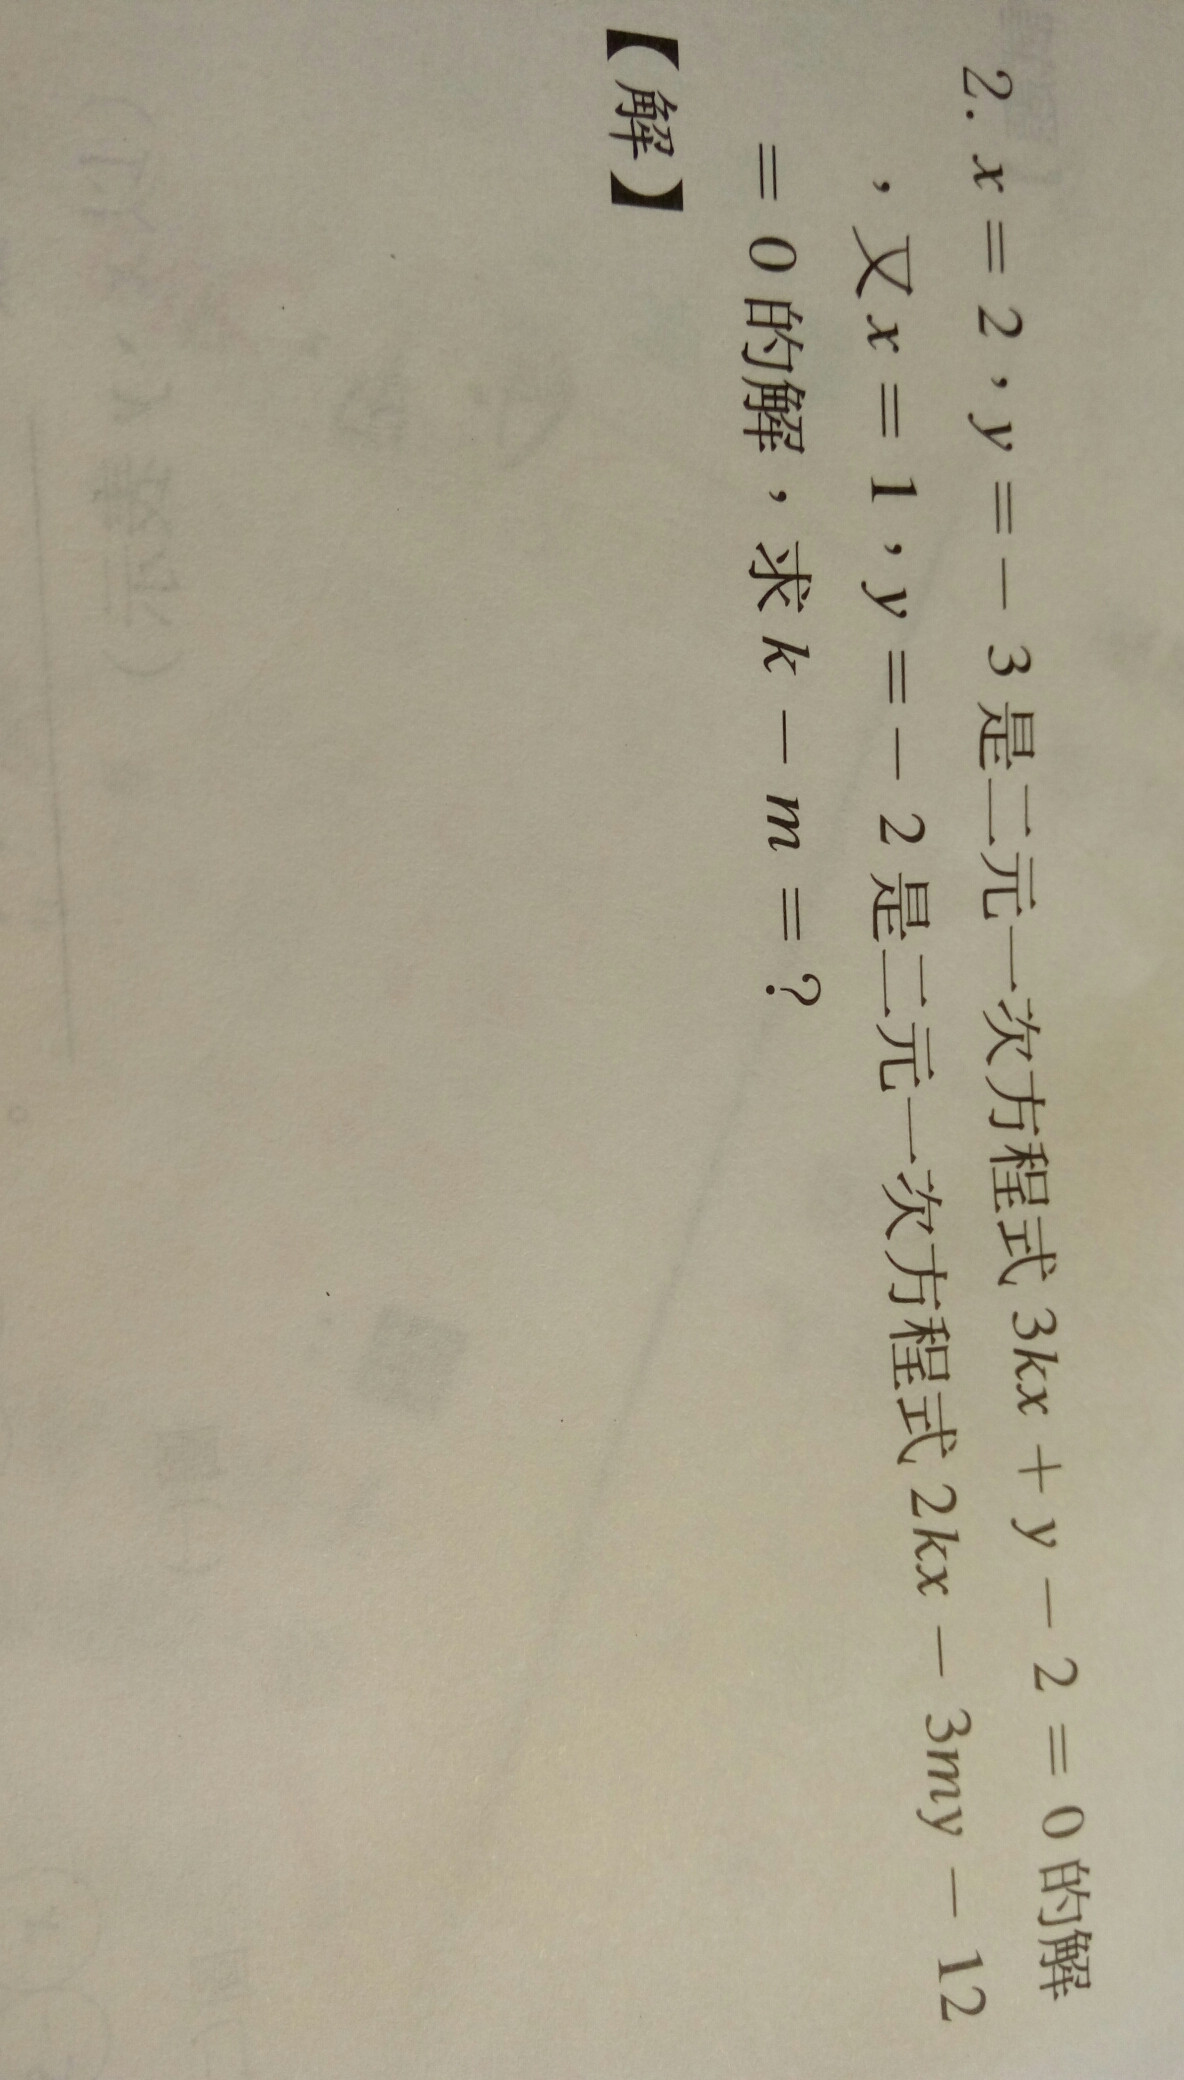 2. x = 2，y = － 3 是二元一次方程式 3kx + y － 2 = 0 的解
，又 x = 1，y = － 2 是二元一次方程式 2kx － 3my － 12
= 0 的解，求 k － m = ?
【解】